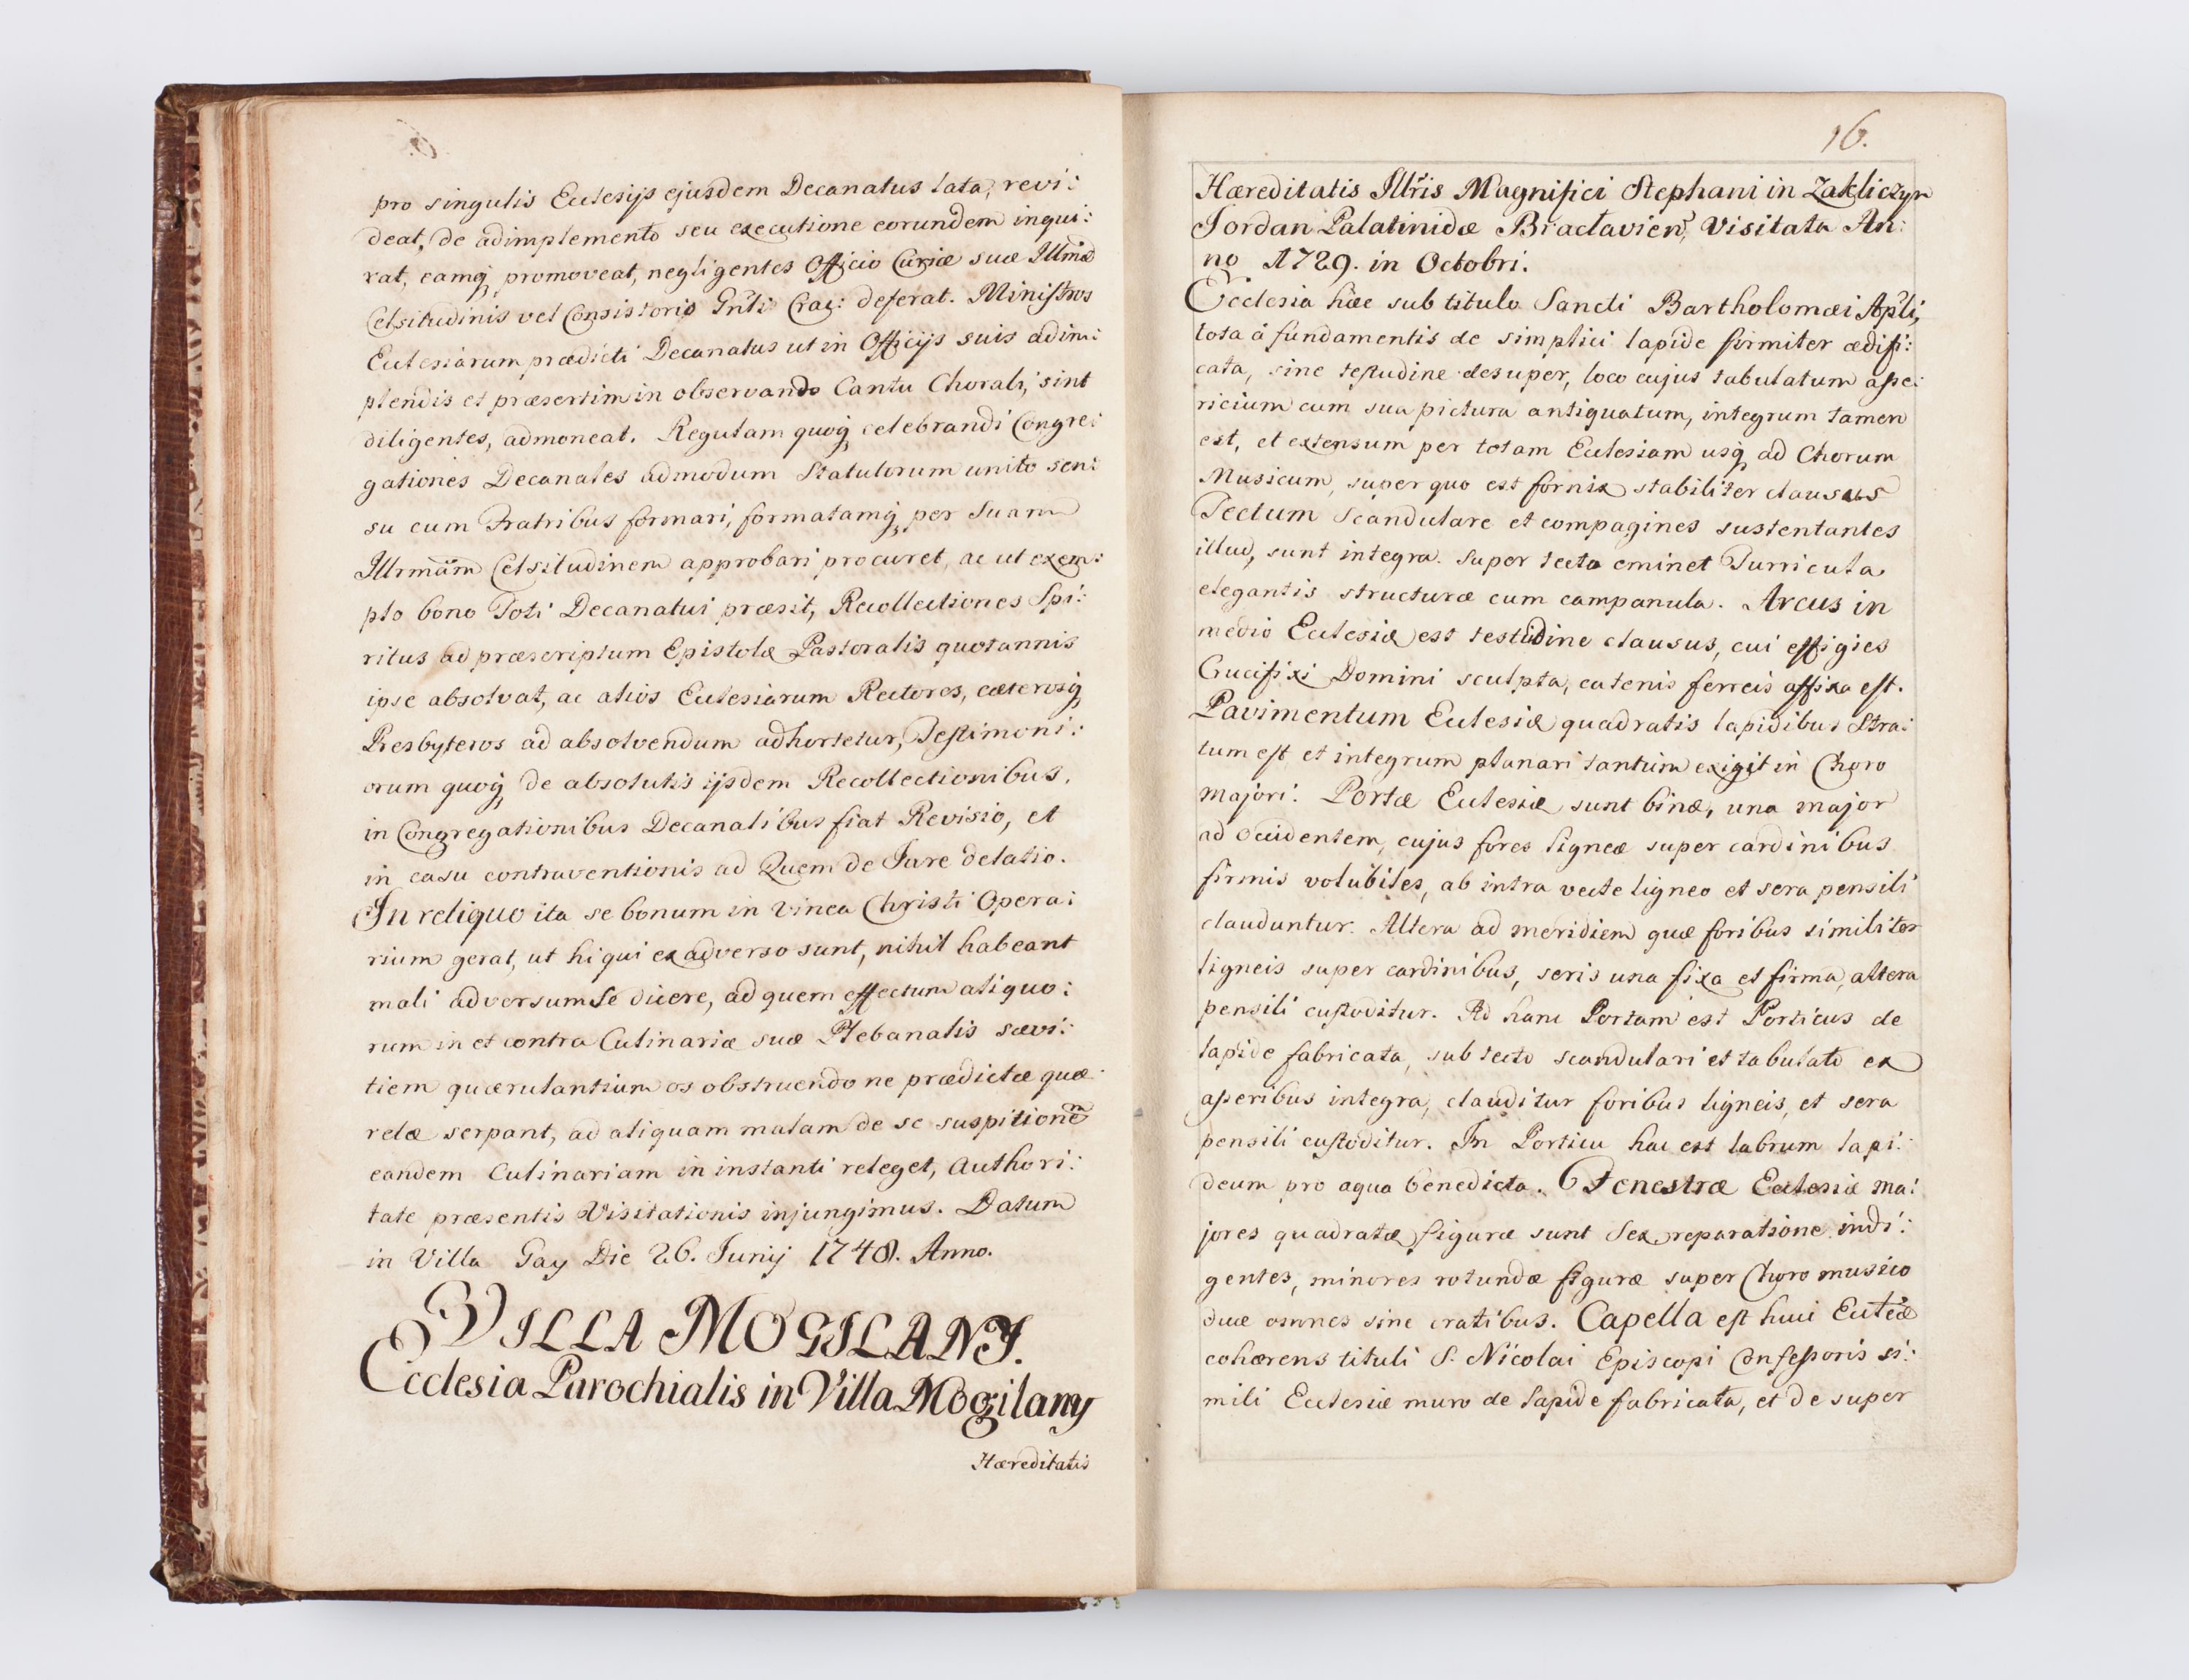 pro singulis Ecclesijs ejusdem Decanatus lata, revi:
deat, de adimplemento seu executione eorundem inqui:
rat, eamq, promoveat, negligentes Officio Curiæ suæ Illmæ
Celsitudinis vel Consistorio Grli Crac: deferat. Ministros
Ecclesiarum prædicti Decanatus ut in Officijs suis adim:
plendis et præsertim in observando Cantu Chorali, sint
diligentes, admoneat. Regulam quoq, celebrandi Congre:
gationes Decanales admodum Statutorum unito sen:
su cum Fratribus formari, formatamq, per Suam
Illrmam Celsitudinem approbari procuret, ac ut exem:
plo bono Toti Decanatui præsit, Recollectiones Spi:
ritus ad præscriptum Epistolæ Pastoralis quotannis
ipse absolvat, ac alios Ecclesiarum Rectores, cæterosq,
Presbyteros ad absolvendum adhortetur, Testimoni:
orum quoq, de absolutis ijsdem Recollectionibus,
in Congregationibus Decanalibus fiat Revisio, et
in casu contraventionis ad Quem de Jure delatio.
In reliquo ita se bonum in Vinea Christi Opera:
rium gerat, ut hi qui ex adverso sunt, nihil habeant
mali adversum Se dicere, ad quem effectum aliquo:
rum in et contra Culinariæ suæ Plebanalis sævi:
tiem quærulantium os obstruendo ne prædictæ quæ
relæ serpant, ad aliquam malam de se suspitionem
eandem Culinariam in instanti releget, Authori:
tate præsentis Visitationis injungimus. Datum
in Villa Gay Die 26. Junij 1748. Anno.
VILLA MOGILANY.
Ecclesia Parochialis in Villa Mogilany
Hæreditatis
16.
Hæreditatis Illris Magnifici Stephani in Zakliczyn
Jordan Palatinidæ Bractavien, Visitata An:
no 1729. in Octobri.
Ecclesia hæc sub titulo Sancti Bartholomæi Apli,
tota á fundamentis de simplici lapide firmiter ædifi:
cata, sine testudine desuper, loco cujus tabulatum asse:
ricium cum sua pictura antiquatum, integrum tamen
est, et extensum per totam Ecclesiam usq, ad Chorum
Musicum, super quo est fornix stabiliter clausus
Tectum Scandulare et compagines sustentantes
illud, sunt integra. Super tecto eminet Turricula
elegantis structuræ cum campanula. Arcus in
medio Ecclesiæ est testudine clausus, cui effigies
Crucifixi Domini sculpta, catenis ferreis affixa est.
Pavimentum Ecclesiæ quadratis lapidibus Stra:
tum est et integrum planari tantum exigit in Choro
majori. Portæ Ecclesiæ sunt binæ, una major
ad Occidentem, cujus fores ligneæ super cardinibus
firmis volubiles, ab intra vecte ligneo et sera pensili
clauduntur. Altera ad meridiem quæ foribus similiter
ligneis super cardinibus, seris una fixa et firma, altera
pensili custoditur. Ad hanc Portam est Porticus de
lapide fabricata, sub tecto scandulari et tabulato ex
asseribus integra, clauditur foribus ligneis, et sera
pensili custoditur. In Porticu hac est labrum lapi:
deum pro aqua benedicta. Fenestræ Ecclesiæ ma:
jores quadratæ figuræ sunt Sex, reparatione indi:
gentes, minores rotundæ figuræ super Choro musico
duæ omnes sine cratibus. Capella est huic Eccleæ
cohærens tituli S. Nicolai Episcopi Confessoris si:
mili Ecclesiæ muro de lapide fabricata, et de super